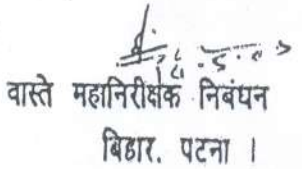 वास्ते महानिरीक्षक निबंधन
बिहार, पटना ।